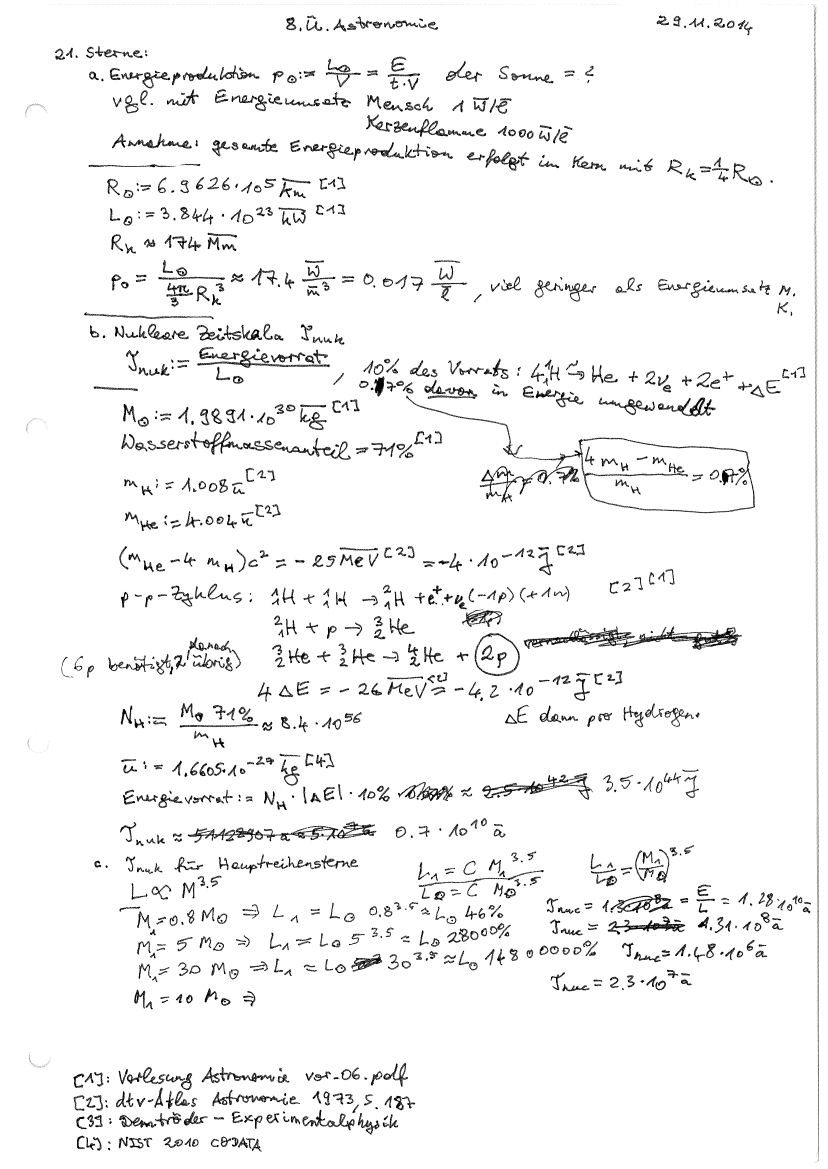 8. Ü. Astronomie 29.11.2014
21. Sterne:
a. Energieproduktion p⊙ := L⊙/V = E/(t·V) der Sonne = ?
vgl. mit Energieumsatz Mensch 1 W/l
Kerzenflamme 1000 W/l
Annahme: gesamte Energieproduktion erfolgt im Kern mit R_k = 1/4 R⊙.
R⊙ := 6.9626·10^5 km [1]
L⊙ := 3.844·10^23 kW [1]
R_k ≈ 174 Mm
p⊙ = L⊙/(4π/3 R_k^3) ≈ 17.4 W/m^3 = 0.017 W/l, viel geringer als Energieumsatz M.
K.
b. Nukleare Zeitskala T_nuk
T_nuk := Energievorrat/L⊙, 10% des Vorrats: 4 ^1_1H → He + 2ν_e + 2e^+ + ΔE [1]
0.7% davon in Energie umgewandelt
M⊙ := 1.9891·10^30 kg [1]
Wasserstoffmassenanteil = 71% [1]
(4 m_H − m_He)/m_H = 0.7%
m_H := 1.008 u [2]
m_He := 4.004 u [2]
(m_He − 4 m_H)c^2 = −25 MeV [2] = −4·10^−12 J [2]
p-p-Zyklus: ^1_1H + ^1_1H → ^2_1H + e^+ + ν_e (−1p)(+1n) [2][1]
^2_1H + p → ^3_2He
(6p benötigt, 2 danach übrig) ^3_2He + ^3_2He → ^4_2He + 2p
4 ΔE = −26 MeV [2] = −4.2·10^−12 J [2]
N_H := M⊙ 71%/m_H ≈ 8.4·10^56 ΔE dann pro Hydrogen.
u := 1.6605·10^−27 kg [4]
Energievorrat := N_H·|ΔE|·10% ≈ 3.5·10^44 J
T_nuk ≈ 0.7·10^10 a
c. T_nuk für Hauptreihensterne L_1 = C M_1^3.5 / L⊙ = C M⊙^3.5 L_1/L⊙ = (M_1/M⊙)^3.5
L ∝ M^3.5
M_1 = 0.8 M⊙ ⇒ L_1 = L⊙ 0.8^3.5 ≈ L⊙ 46% T_nuc = E/L = 1.28·10^10 a
M_1 = 5 M⊙ ⇒ L_1 = L⊙ 5^3.5 ≈ L⊙ 28000% T_nuc = 1.31·10^8 a
M_1 = 30 M⊙ ⇒ L_1 = L⊙ 30^3.5 ≈ L⊙ 14800000% T_nuc = 1.48·10^6 a
M_1 = 10 M⊙ ⇒ T_nuc = 2.3·10^7 a
[1]: Vorlesung Astronomie vor-06.pdf
[2]: dtv-Atlas Astronomie 1973, S. 187
[3]: Demtröder – Experimentalphysik
[4]: NIST 2010 CODATA